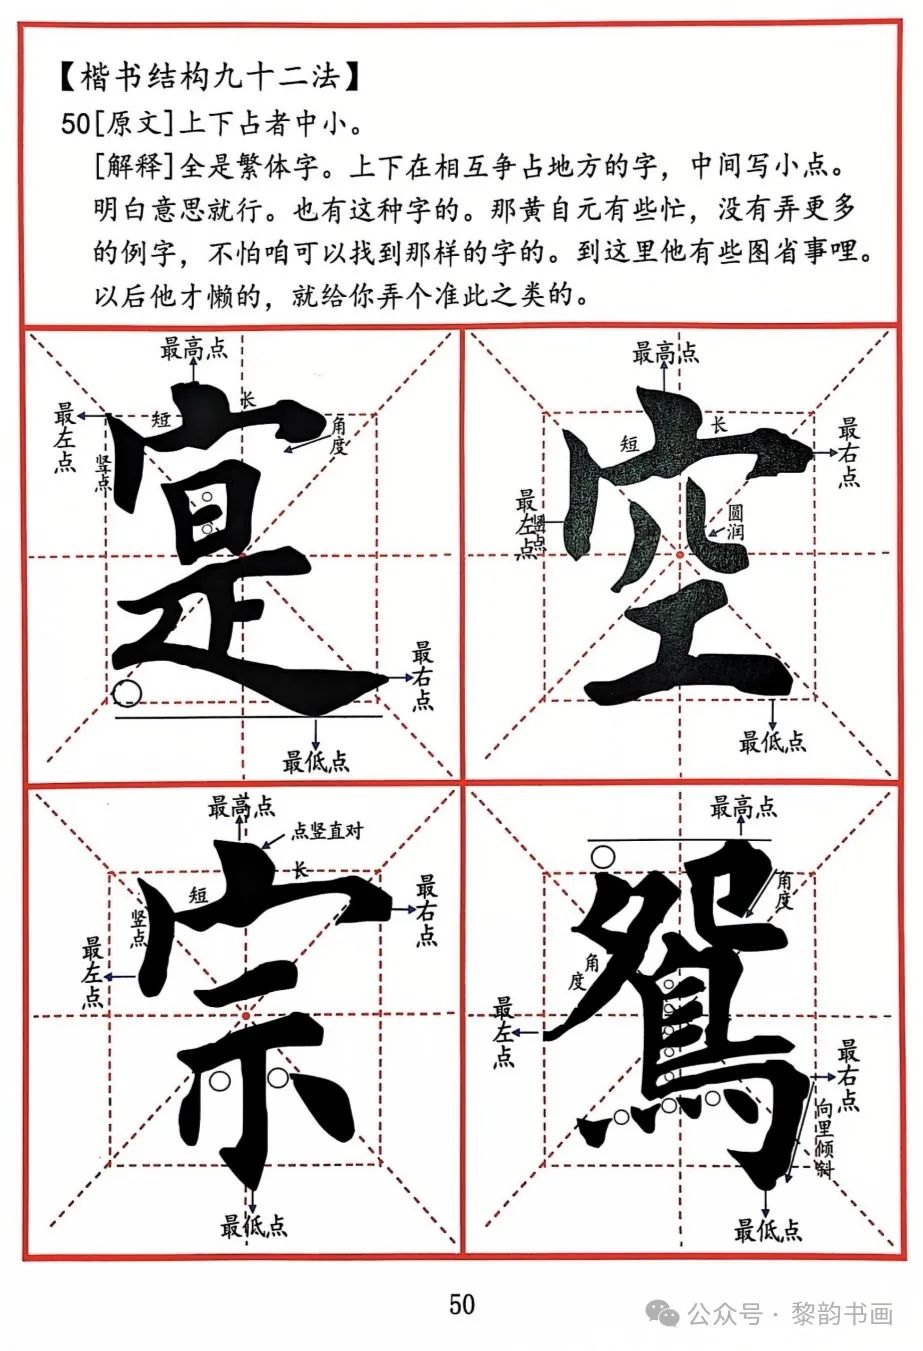 【楷书结构九十二法】
50[原文]上下占者中小。
[解释]全是繁体字。上下在相互争占地方的字，中间写小点。
明白意思就行。也有这种字的。那黄自元有些忙，没有弄更多
的例字，不怕咱可以找到那样的字的。到这里他有些图省事哩。
以后他才懒的，就给你弄个准此之类的。
最高点
长
短
最左点
竖点
角度
寔
最右点
最低点
最高点
长
短
最右点
最左点
竖点
圆润
空
最低点
最高点
点竖直对
长
短
竖点
最右点
最左点
宗
最低点
最高点
角度
角度
鴛
最左点
最右点
向里倾斜
最低点
50
公众号·黎韵书画